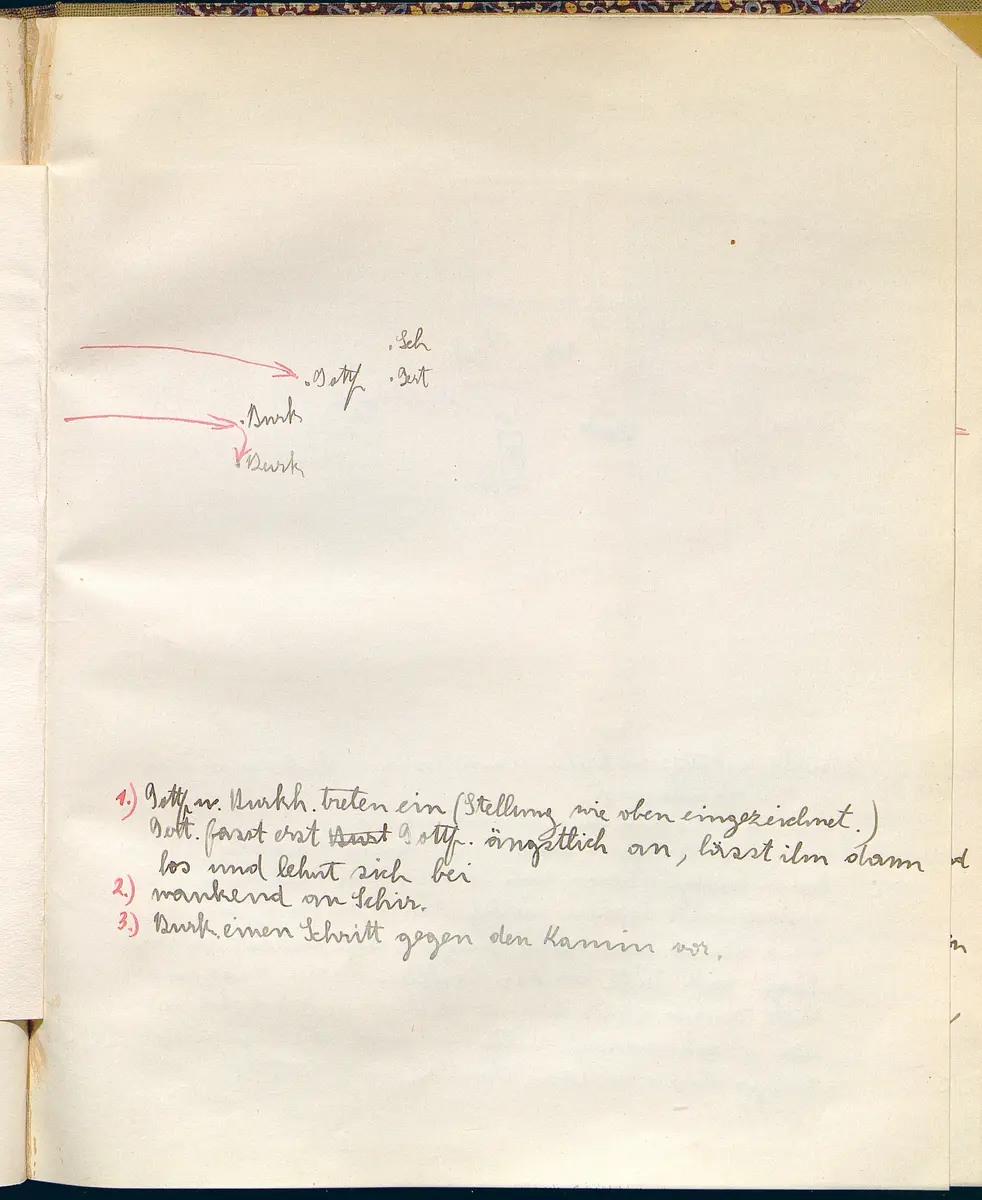 . Sch
. Gottf. . Gert
. Burk
. Burk
1.) Gottf. u. Burkh. treten ein (Stellung wie oben eingezeichnet.)
Gert. fasst erst Burk Gottf. ängstlich an, lässt ihn dann
los und lehnt sich bei
2.) wankend an Schir.
3.) Burk. einen Schritt gegen den Kamin vor.